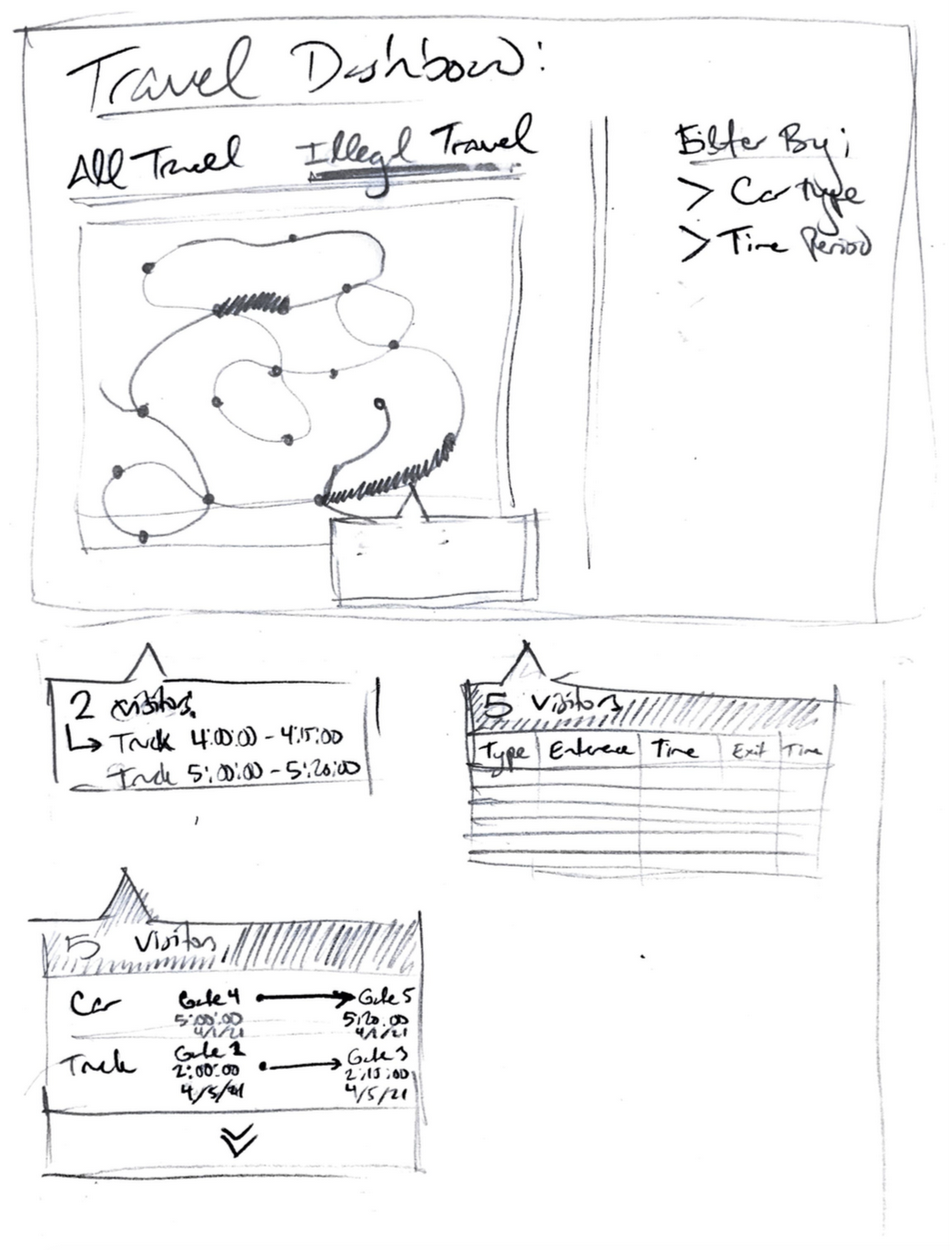 Travel Dashboard:
All Travel Illegal Travel
Filter By:
> Car type
> Time Period
2 visitors
Truck 4:00:00 - 4:15:00
Truck 5:00:00 - 5:20:00
5 Visitors
Type Entrance Time Exit Time
5 Visitors
Car Gate 4 Gate 5
5:00:00 5:20:00
4/1/21 4/1/21
Truck Gate 2 Gate 3
2:00:00 2:15:00
4/5/21 4/5/21